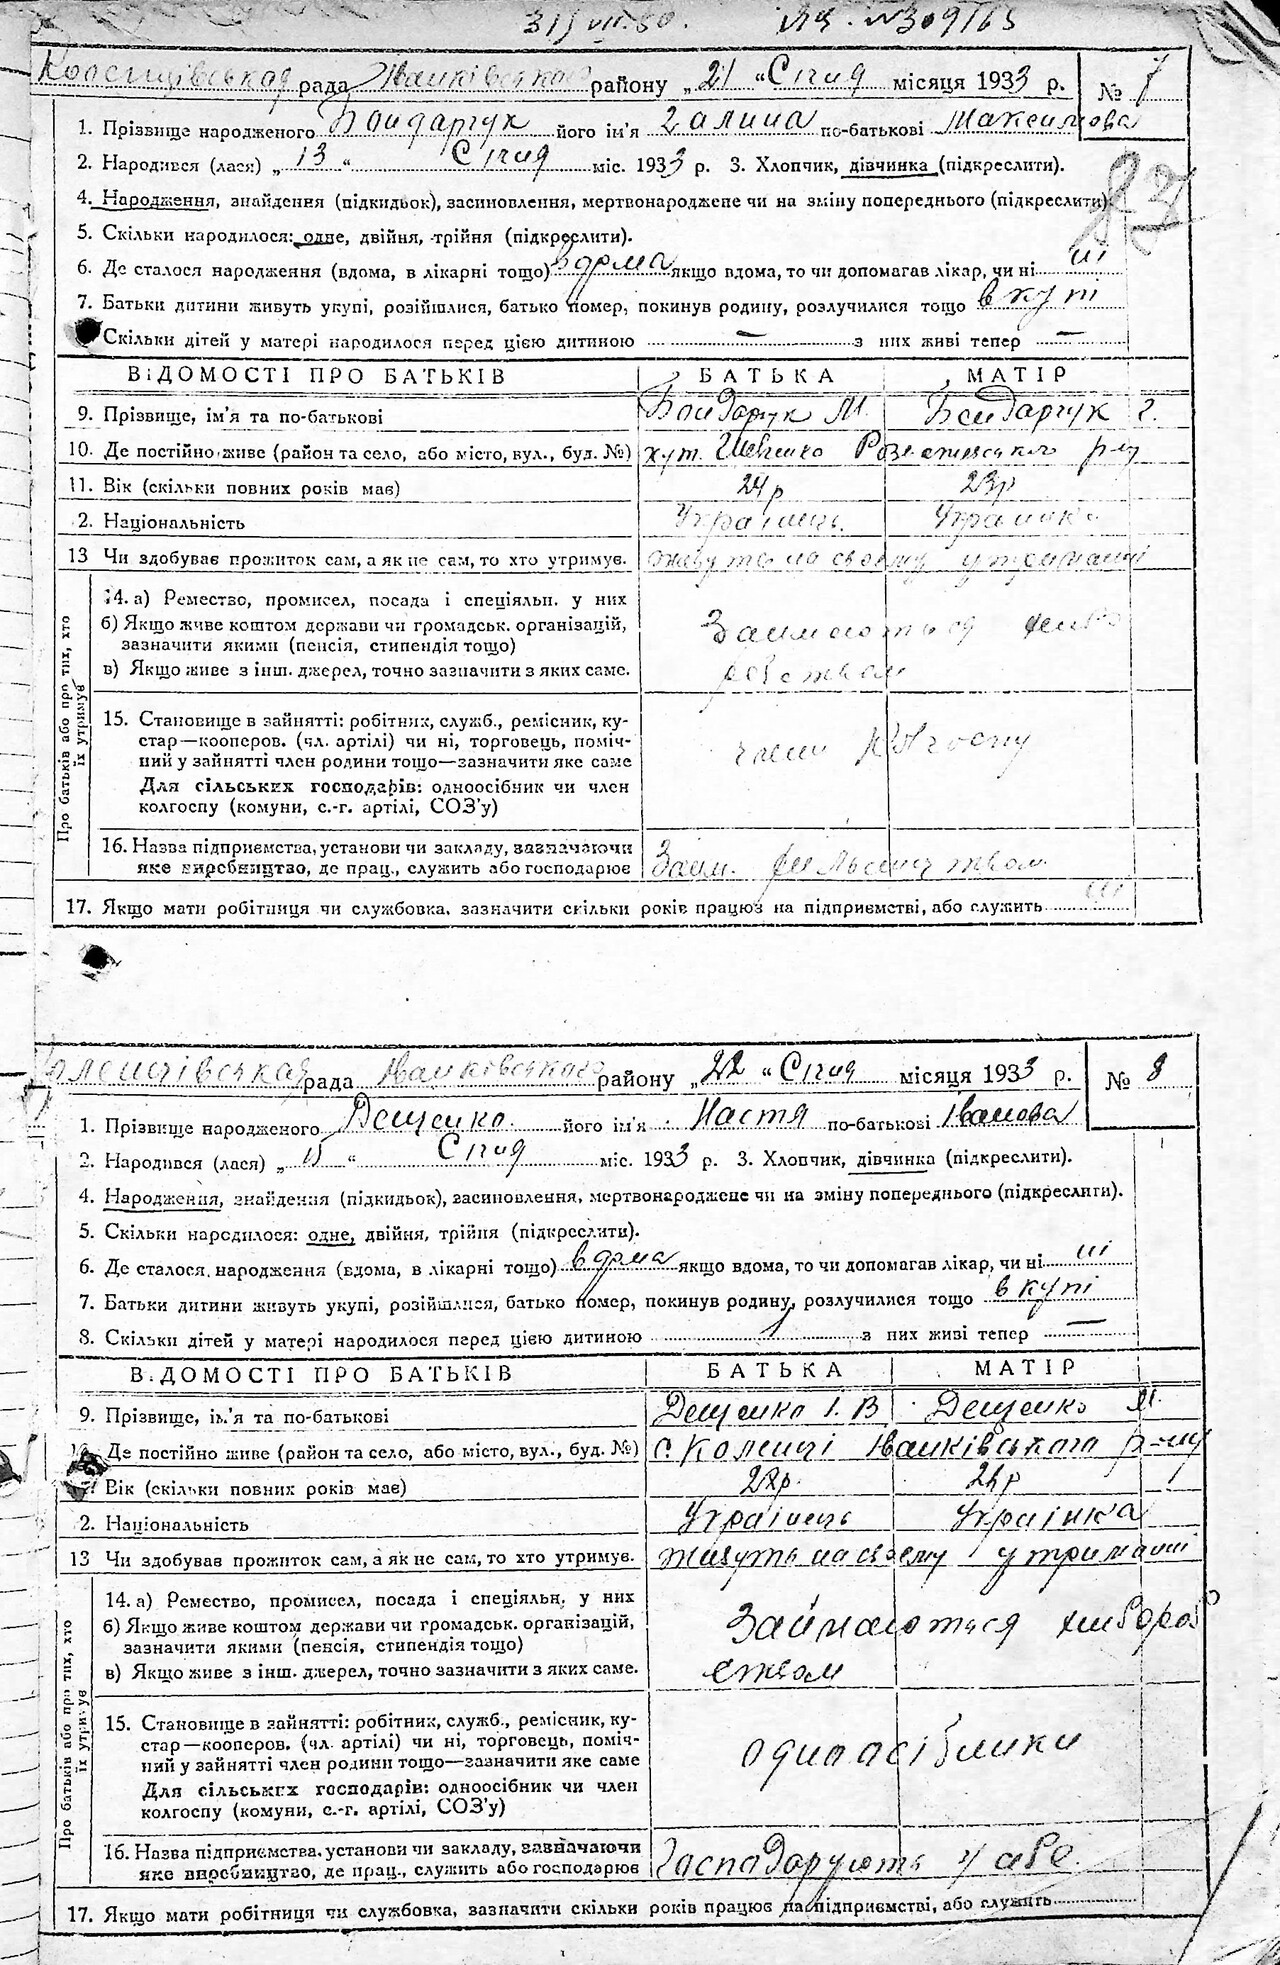 31/VII.50. №309/65
Коленцівская рада Іванківського району „21“ Січня місяця 1933 р. № 7
1. Прізвище народженого Бондарчук його ім'я Галина по-батькові Максимова
2. Народився (лася) „13“ Січня міс. 1933 р. 3. Хлопчик, дівчинка (підкреслити).
4. Народження, знайдення (підкидьок), засиновлення, мертвонароджене чи на зміну попереднього (підкреслити).
5. Скільки народилося: одне, двійня, трійня (підкреслити).
6. Де сталося народження (вдома, в лікарні тощо) вдома якщо вдома, то чи допомагав лікар, чи ні ні
7. Батьки дитини живуть укупі, розійшлися, батько помер, покинув родину, розлучилися тощо вкупі
Скільки дітей у матері народилося перед цією дитиною — з них живі тепер —
ВІДОМОСТІ ПРО БАТЬКІВ БАТЬКА МАТІР
9. Прізвище, ім'я та по-батькові Бондарчук М. Бондарчук Г.
10. Де постійно живе (район та село, або місто, вул., буд. №) хут. р-ну
11. Вік (скільки повних років має) 24р 23р
2. Національність Українець Українка
13 Чи здобуває прожиток сам, а як не сам, то хто утримує. живуть на своєму утриманні
Про батьків або про тих, хто їх утримує
14. а) Ремество, промисел, посада і спеціяльн. у них
б) Якщо живе коштом держави чи громадськ. організацій,
зазначити якими (пенсія, стипендія тощо)
в) Якщо живе з інш. джерел, точно зазначити з яких саме.
Займаються хлібо
робством
15. Становище в зайнятті: робітник, служб., ремісник, ку-
стар—кооперов. (чл. артілі) чи ні, торговець, поміч-
ний у зайнятті член родини тощо—зазначити яке саме
Для сільських господарів: одноосібник чи член
колгоспу (комуни, с.-г. артілі, СОЗ'у)
члени колгоспу
16. Назва підприємства, установи чи закладу, зазначаючи
яке виробництво, де прац., служить або господарює Займ.
17. Якщо мати робітниця чи службовка, зазначити скільки років працює на підприємстві, або служить ні
Коленцівская рада Іванківського району „22“ Січня місяця 1933 р. № 8
1. Прізвище народженого Деценко його ім'я Настя по-батькові Іванова
2. Народився (лася) „15“ Січня міс. 1933 р. 3. Хлопчик, дівчинка (підкреслити).
4. Народження, знайдення (підкидьок), засиновлення, мертвонароджене чи на зміну попереднього (підкреслити).
5. Скільки народилося: одне, двійня, трійня (підкреслити).
6. Де сталося народження (вдома, в лікарні тощо) вдома якщо вдома, то чи допомагав лікар, чи ні ні
7. Батьки дитини живуть укупі, розійшлися, батько помер, покинув родину, розлучилися тощо вкупі
8. Скільки дітей у матері народилося перед цією дитиною 1 з них живі тепер —
ВІДОМОСТІ ПРО БАТЬКІВ БАТЬКА МАТІР
9. Прізвище, ім'я та по-батькові Деценко І. В Деценко М.
Де постійно живе (район та село, або місто, вул., буд. №) с. Коленці Іванківського р-ну
Вік (скільки повних років має) 22р. 24р
2. Національність Українець Українка
13 Чи здобуває прожиток сам, а як не сам, то хто утримує. живуть на своєму утриманні
Про батьків або про тих, хто їх утримує
14. а) Ремество, промисел, посада і спеціяльн. у них
б) Якщо живе коштом держави чи громадськ. організацій,
зазначити якими (пенсія, стипендія тощо)
в) Якщо живе з інш. джерел, точно зазначити з яких саме.
Займаються хлибороб
ством
15. Становище в зайнятті: робітник, служб., ремісник, ку-
стар—кооперов. (чл. артілі) чи ні, торговець, поміч-
ний у зайнятті член родини тощо—зазначити яке саме
Для сільських господарів: одноосібник чи член
колгоспу (комуни, с.-г. артілі, СОЗ'у)
одиноасібники
16. Назва підприємства, установи чи закладу, зазначаючи
яке виробництво, де прац., служить або господарює Гасподарують у себе.
17. Якщо мати робітниця чи службовка, зазначити скільки років працює на підприємстві, або служить